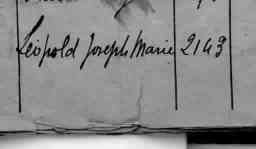 Léopold Joseph Marie 2143